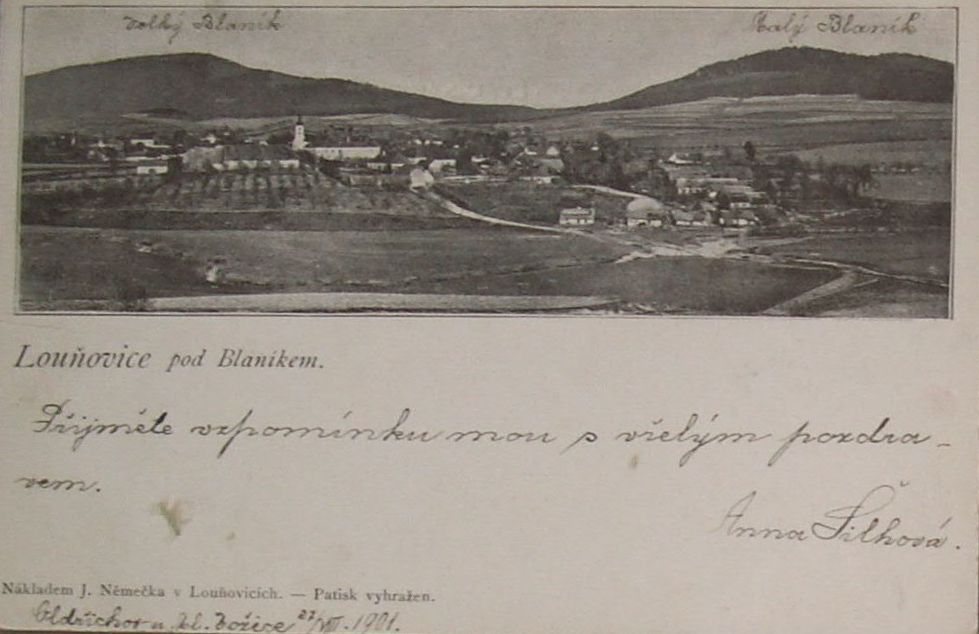 Velký Blaník
Malý Blaník
Louňovice pod Blaníkem.
Přijměte vzpomínku mou s vřelým pozdra-
vem.
Anna Šilhová.
Nákladem J. Němečka v Louňovicích. — Patisk vyhražen.
Oldřichov u Ml. Vožice 27/VII. 1901.